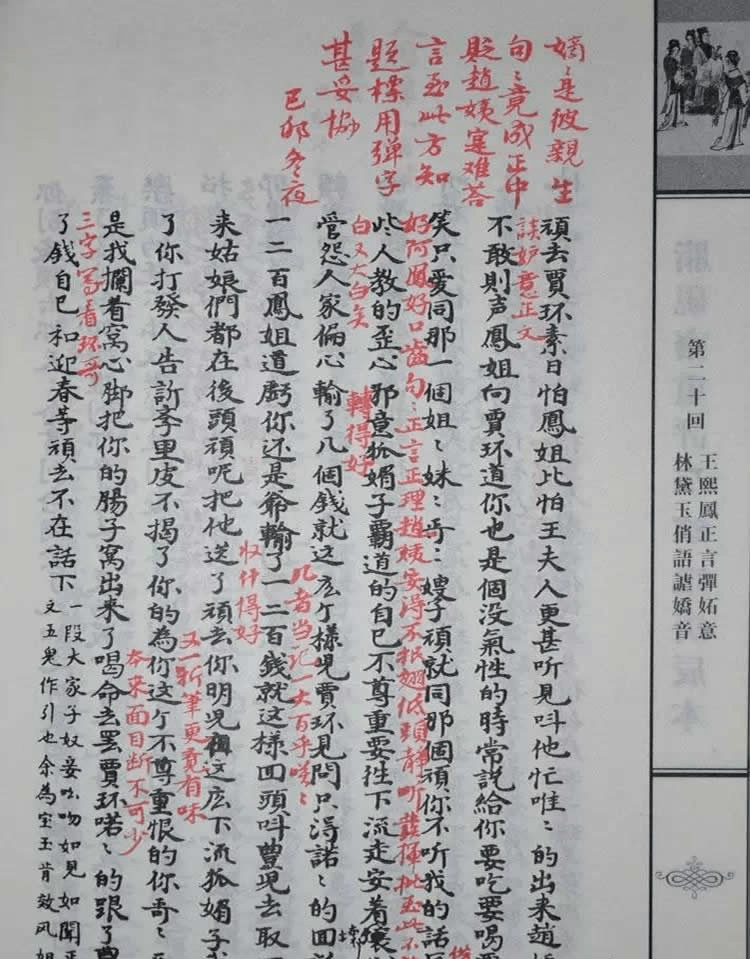 第二十回
王熙鳳正言彈妬意
林黛玉俏語謔嬌音
嫡〻是彼親生
句〻竟成正中
貶趙姨寔难荅
言至此方知
題標用彈字
甚妥協
己卯冬夜
頑去賈环素日怕鳳姐比怕王夫人更甚听見呌他忙唯〻的出来趙
談妒意正文
不敢則声鳳姐向賈环道你也是個没氣性的時常説給你要吃要喝要
笑只爱同那一個姐〻妹〻哥〻嫂子頑就同那個頑你不听我的話
好阿鳳好口齒句〻正言正理趙姨安得不抿翅低頭静听發揮批至此不
些人教的歪心邪意狐媚子霸道的自己不尊重要徃下流走安着壞
白又大白矣
轉得好
管怨人家偏心輸了几個錢就这広个様児賈环見問只淂諾〻的回
一二百鳳姐道虧你还是爺輸了一二百錢就这樣囬頭呌豊児去取
几者当記一大百乎咲〻
来姑娘們都在後頭頑呢把他送了頑去你明児再这広下流狐媚子
収什得好
了你打發人告訴李里皮不揭了你的為你这个不尊重恨的你哥〻
又一折筆更覔有味
是我攔着窩心脚把你的腸子窩出来了喝命去罷賈环喏〻的跟了豊
本来面目断不可少
三字寫着环哥
了錢自己和迎春等頑去不在話下
一段大家子奴妾吆吻如見如聞正
文五鬼作引也余為宝玉肯效凤姐